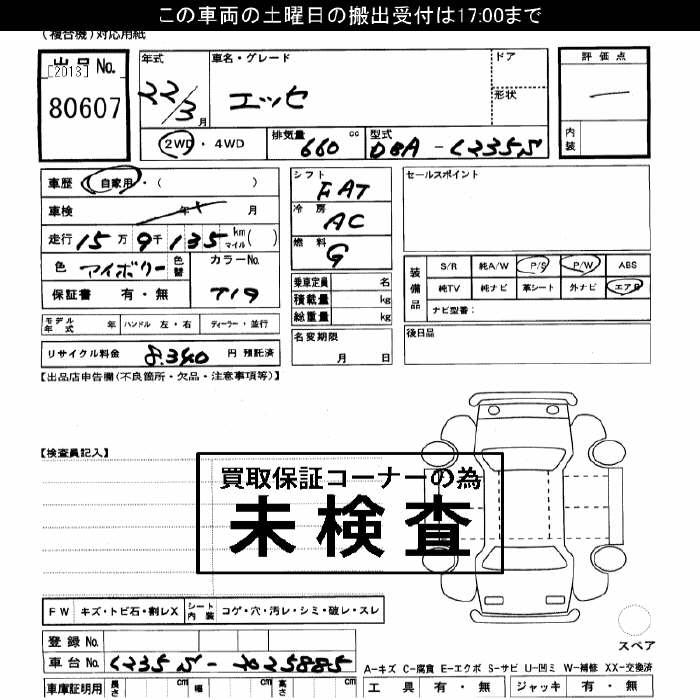 この車両の土曜日の搬出受付は17:00まで
(複合機)対応用紙
出品No.
[2013]
80607
年式
22/3月
車名・グレード
エッセ
ドア
形状
評価点
内装
2WD・4WD
排気量 660 cc
型式 DBA-L235S
車歴 自家用・( )
車検 年 月
走行 15万 9千 135 km マイル ( )
色 アイボリー 色替
カラーNo.
719
保証書 有・無
シフト
FAT
冷房
AC
燃料
G
乗車定員 名
積載量 kg
総重量 kg
セールスポイント
装備品
S/R 純A/W P/S P/W ABS
純TV 純ナビ 革シート 外ナビ エアB
ナビ型番:
モデル年式 年 ハンドル 左・右 ディーラー・並行
名変期限
月 日
後日品
リサイクル料金 8,340 円 預託済
【出品店申告欄(不良箇所・欠品・注意事項等)】
【検査員記入】
買取保証コーナーの為
未検査
FW キズ・トビ石・割レX シート内装 コゲ・穴・汚レ・シミ・破レ・スレ
スペア
登録No.
車台No. L235S-2025885
A-キズ C-腐食 E-エクボ S-サビ U-凹ミ W-補修 XX-交換済
車庫証明用 長さ cm 幅 cm 高さ cm
工具 有・無 ジャッキ 有・無